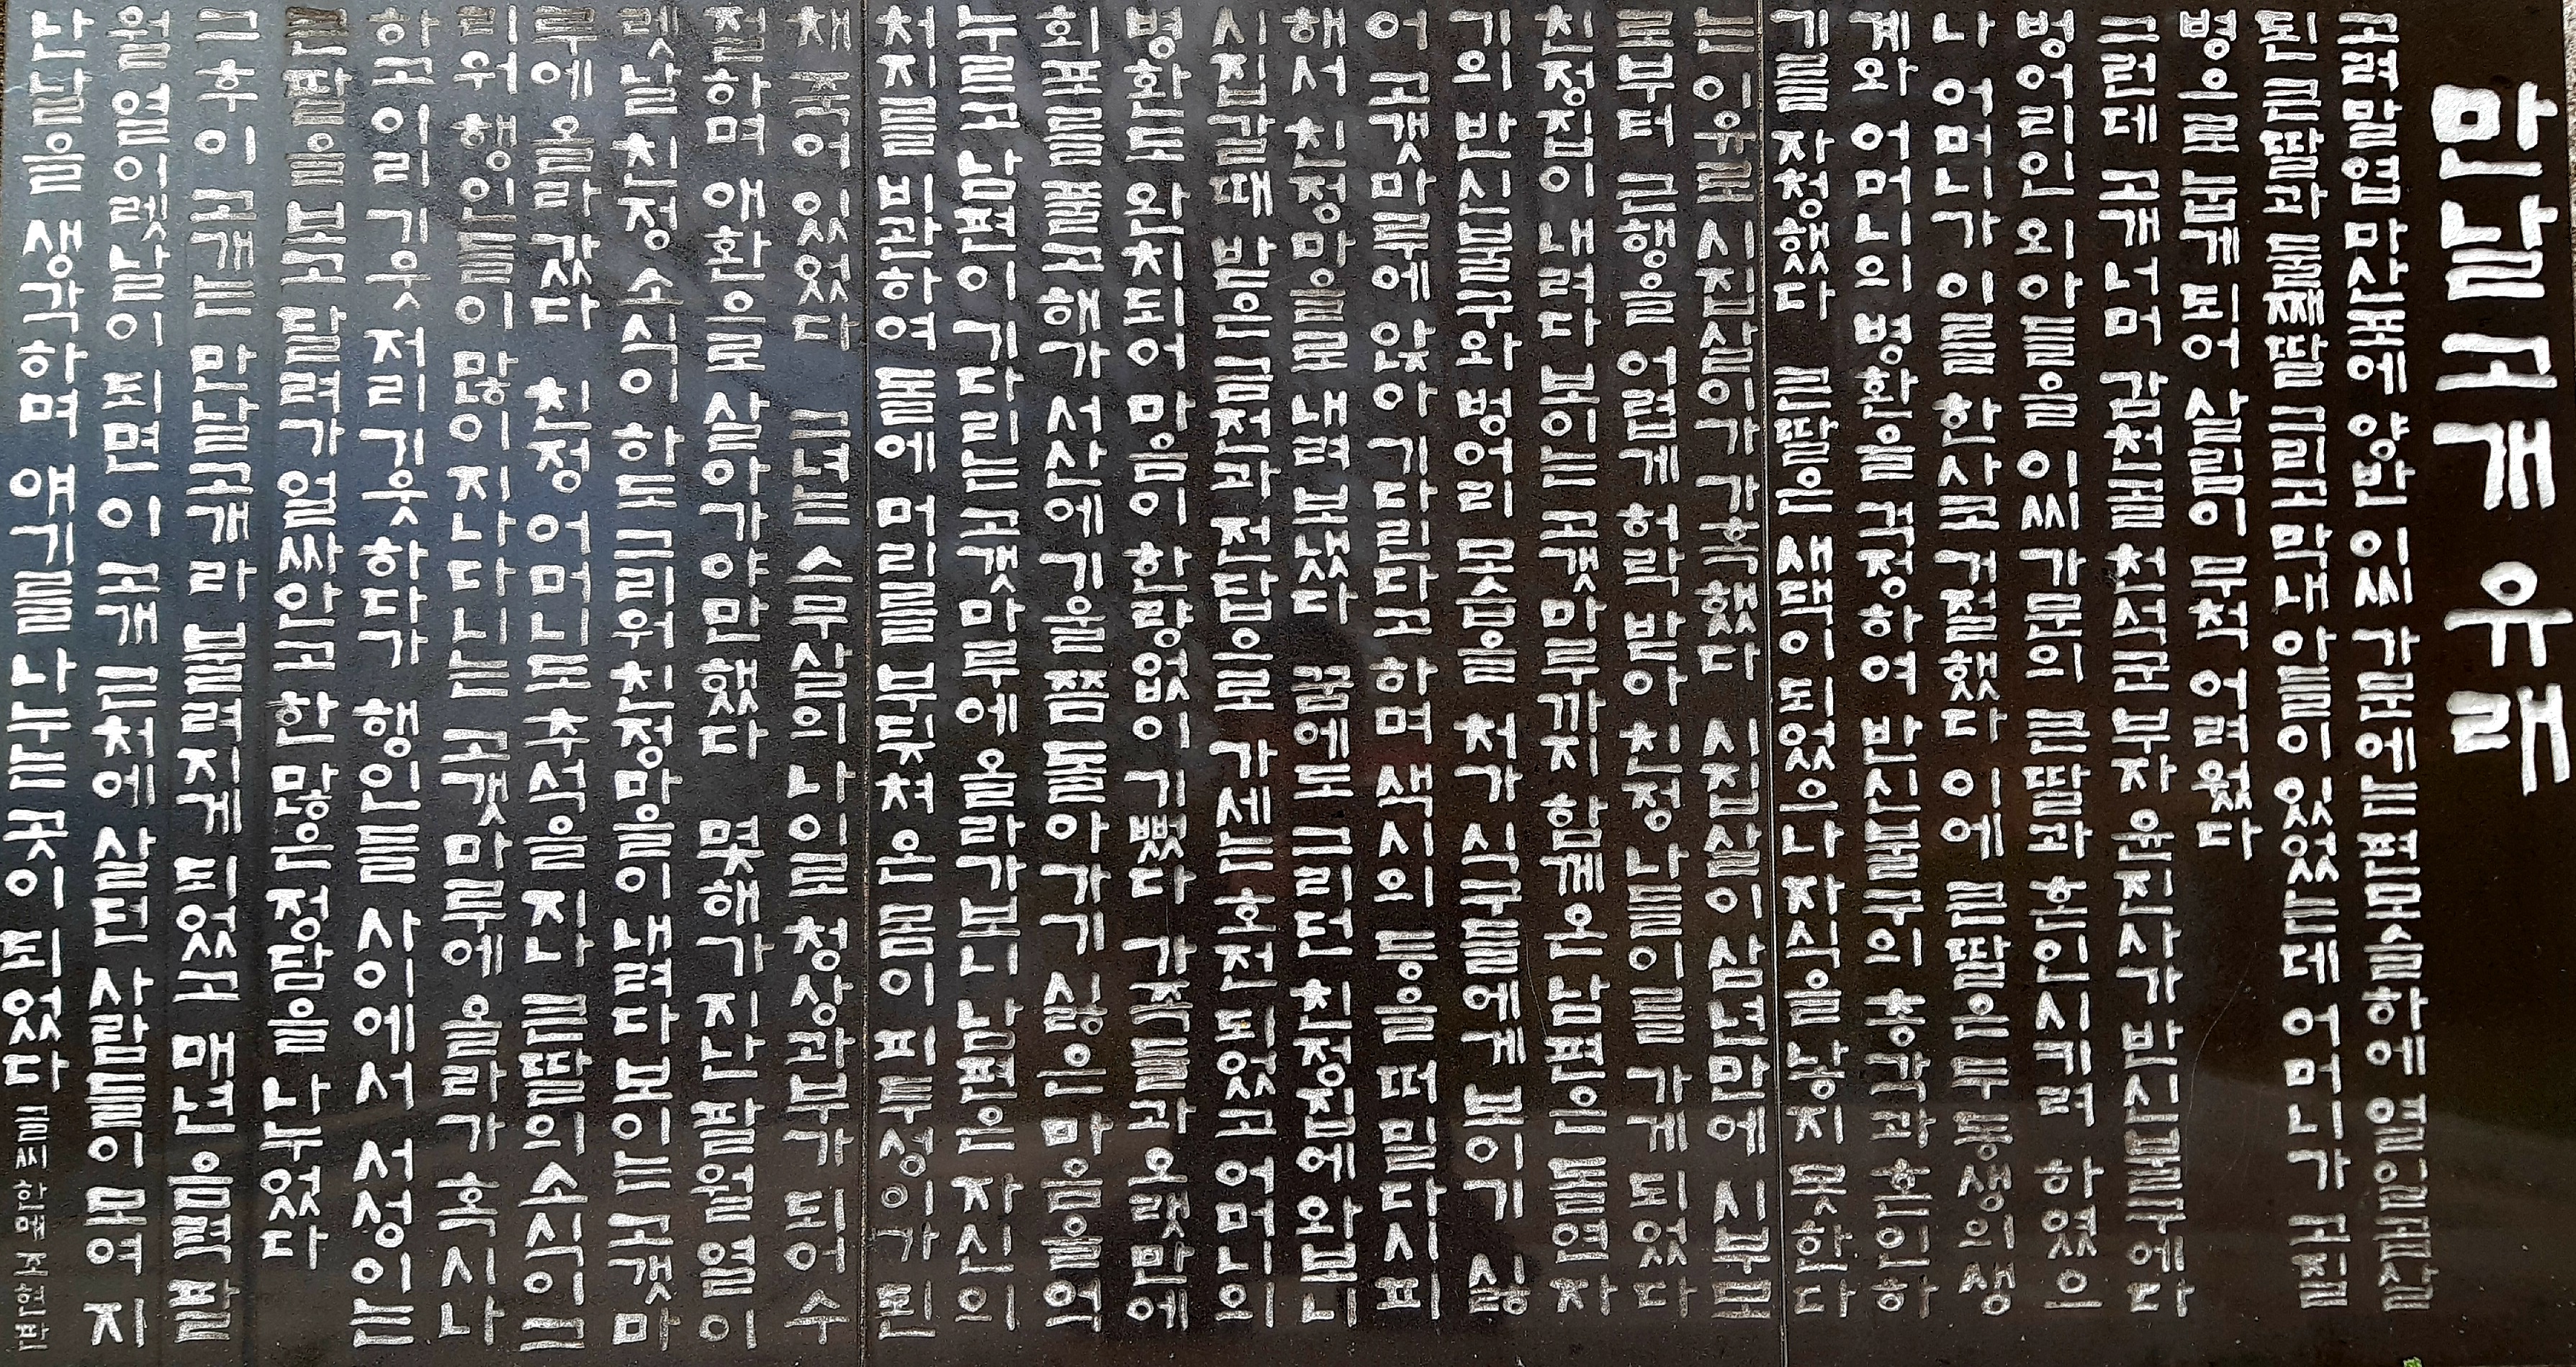 만날고개 유래
고려말엽 마산포에 양반 이씨 가문에는 편모슬하에 열일곱살
된 큰딸과 둘째딸 그리고 막내 아들이 있었는데 어머니가 고질
병으로 눕게 되어 살림이 무척 어려웠다
그런데 고개너머 감천골 천석군 부자 윤진사가 반신불구에다
벙어리인 외아들을 이씨 가문의 큰딸과 혼인시키려 하였으
나 어머니가 이를 한사코 거절했다 이에 큰딸은 두 동생의 생
계와 어머니의 병환을 걱정하여 반신불구의 총각과 혼인하
기를 자청했다 큰딸은 새댁이 되었으나 자식을 낳지 못한다
는 이유로 시집살이가 가혹했다 시집살이 삼년만에 시부모
로부터 근행을 어렵게 허락 받아 친정 나들이를 가게 되었다
친정집이 내려다 보이는 고갯마루까지 함께온 남편은 돌연 자
기의 반신불구와 벙어리 모습을 처가 식구들에게 보이기 싫
어 고갯마루에 앉아 기다린다고 하며 색시의 등을 떠 밀다시피
해서 친정마을로 내려 보냈다 꿈에도 그리던 친정집에 와보니
시집갈때 받은 금전과 전답으로 가세는 호전되었고 어머니의
병환도 완치되어 마음이 한량없이 기뻤다 가족들과 오랫만에
회포를 풀고 해가 서산에 기울 쯤 돌아가기 싫은 마음을 억
누르고 남편이 기다리는 고갯마루에 올라가보니 남편은 자신의
처지를 비관하여 돌에 머리를 부딪쳐 온 몸이 피투성이가 된
채 죽어 있었다 그녀는 스무살의 나이로 청상과부가 되어 수
절하며 애환으로 살아가야만 했다 몇해가 지난 팔월 열이
렛날 친정 소식이 하도 그리워 친정마을이 내려다 보이는 고갯마
루에 올라 갔다 친정 어머니도 추석을 지나 큰딸의 소식이 그
리워 행인들이 많이 지나다니는 고갯마루에 올라가 혹시나
하고 이리 기웃 저리 기웃 하다가 행인들 사이에서 서성이는
큰딸을 보고 달려가 얼싸안고 한 많은 정담을 나누었다
그후 이 고개는 만날고개라 불려지게 되었고 매년 음력 팔
월 열이렛날이 되면 이 고개 근처에 살던 사람들이 모여 지
난날을 생각하며 얘기를 나누는 곳이 되었다 글씨 한메 조현판